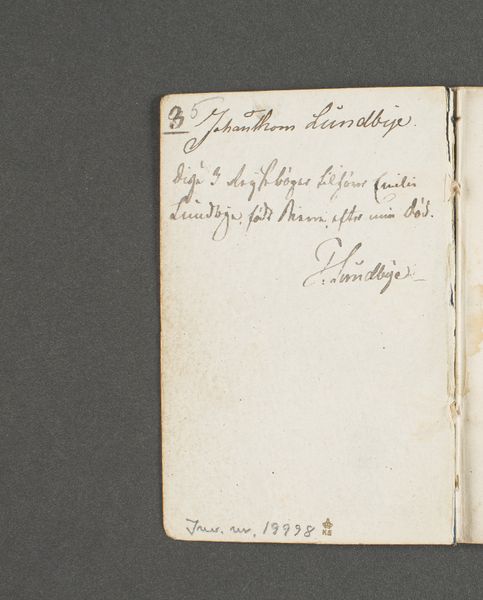 3 5
Johan Thom Lundbye.
Disse 3 Skizebøger tilhører Emilie
Lundbye, født efter min død.
Lundbye.
Inv. nr. 19998